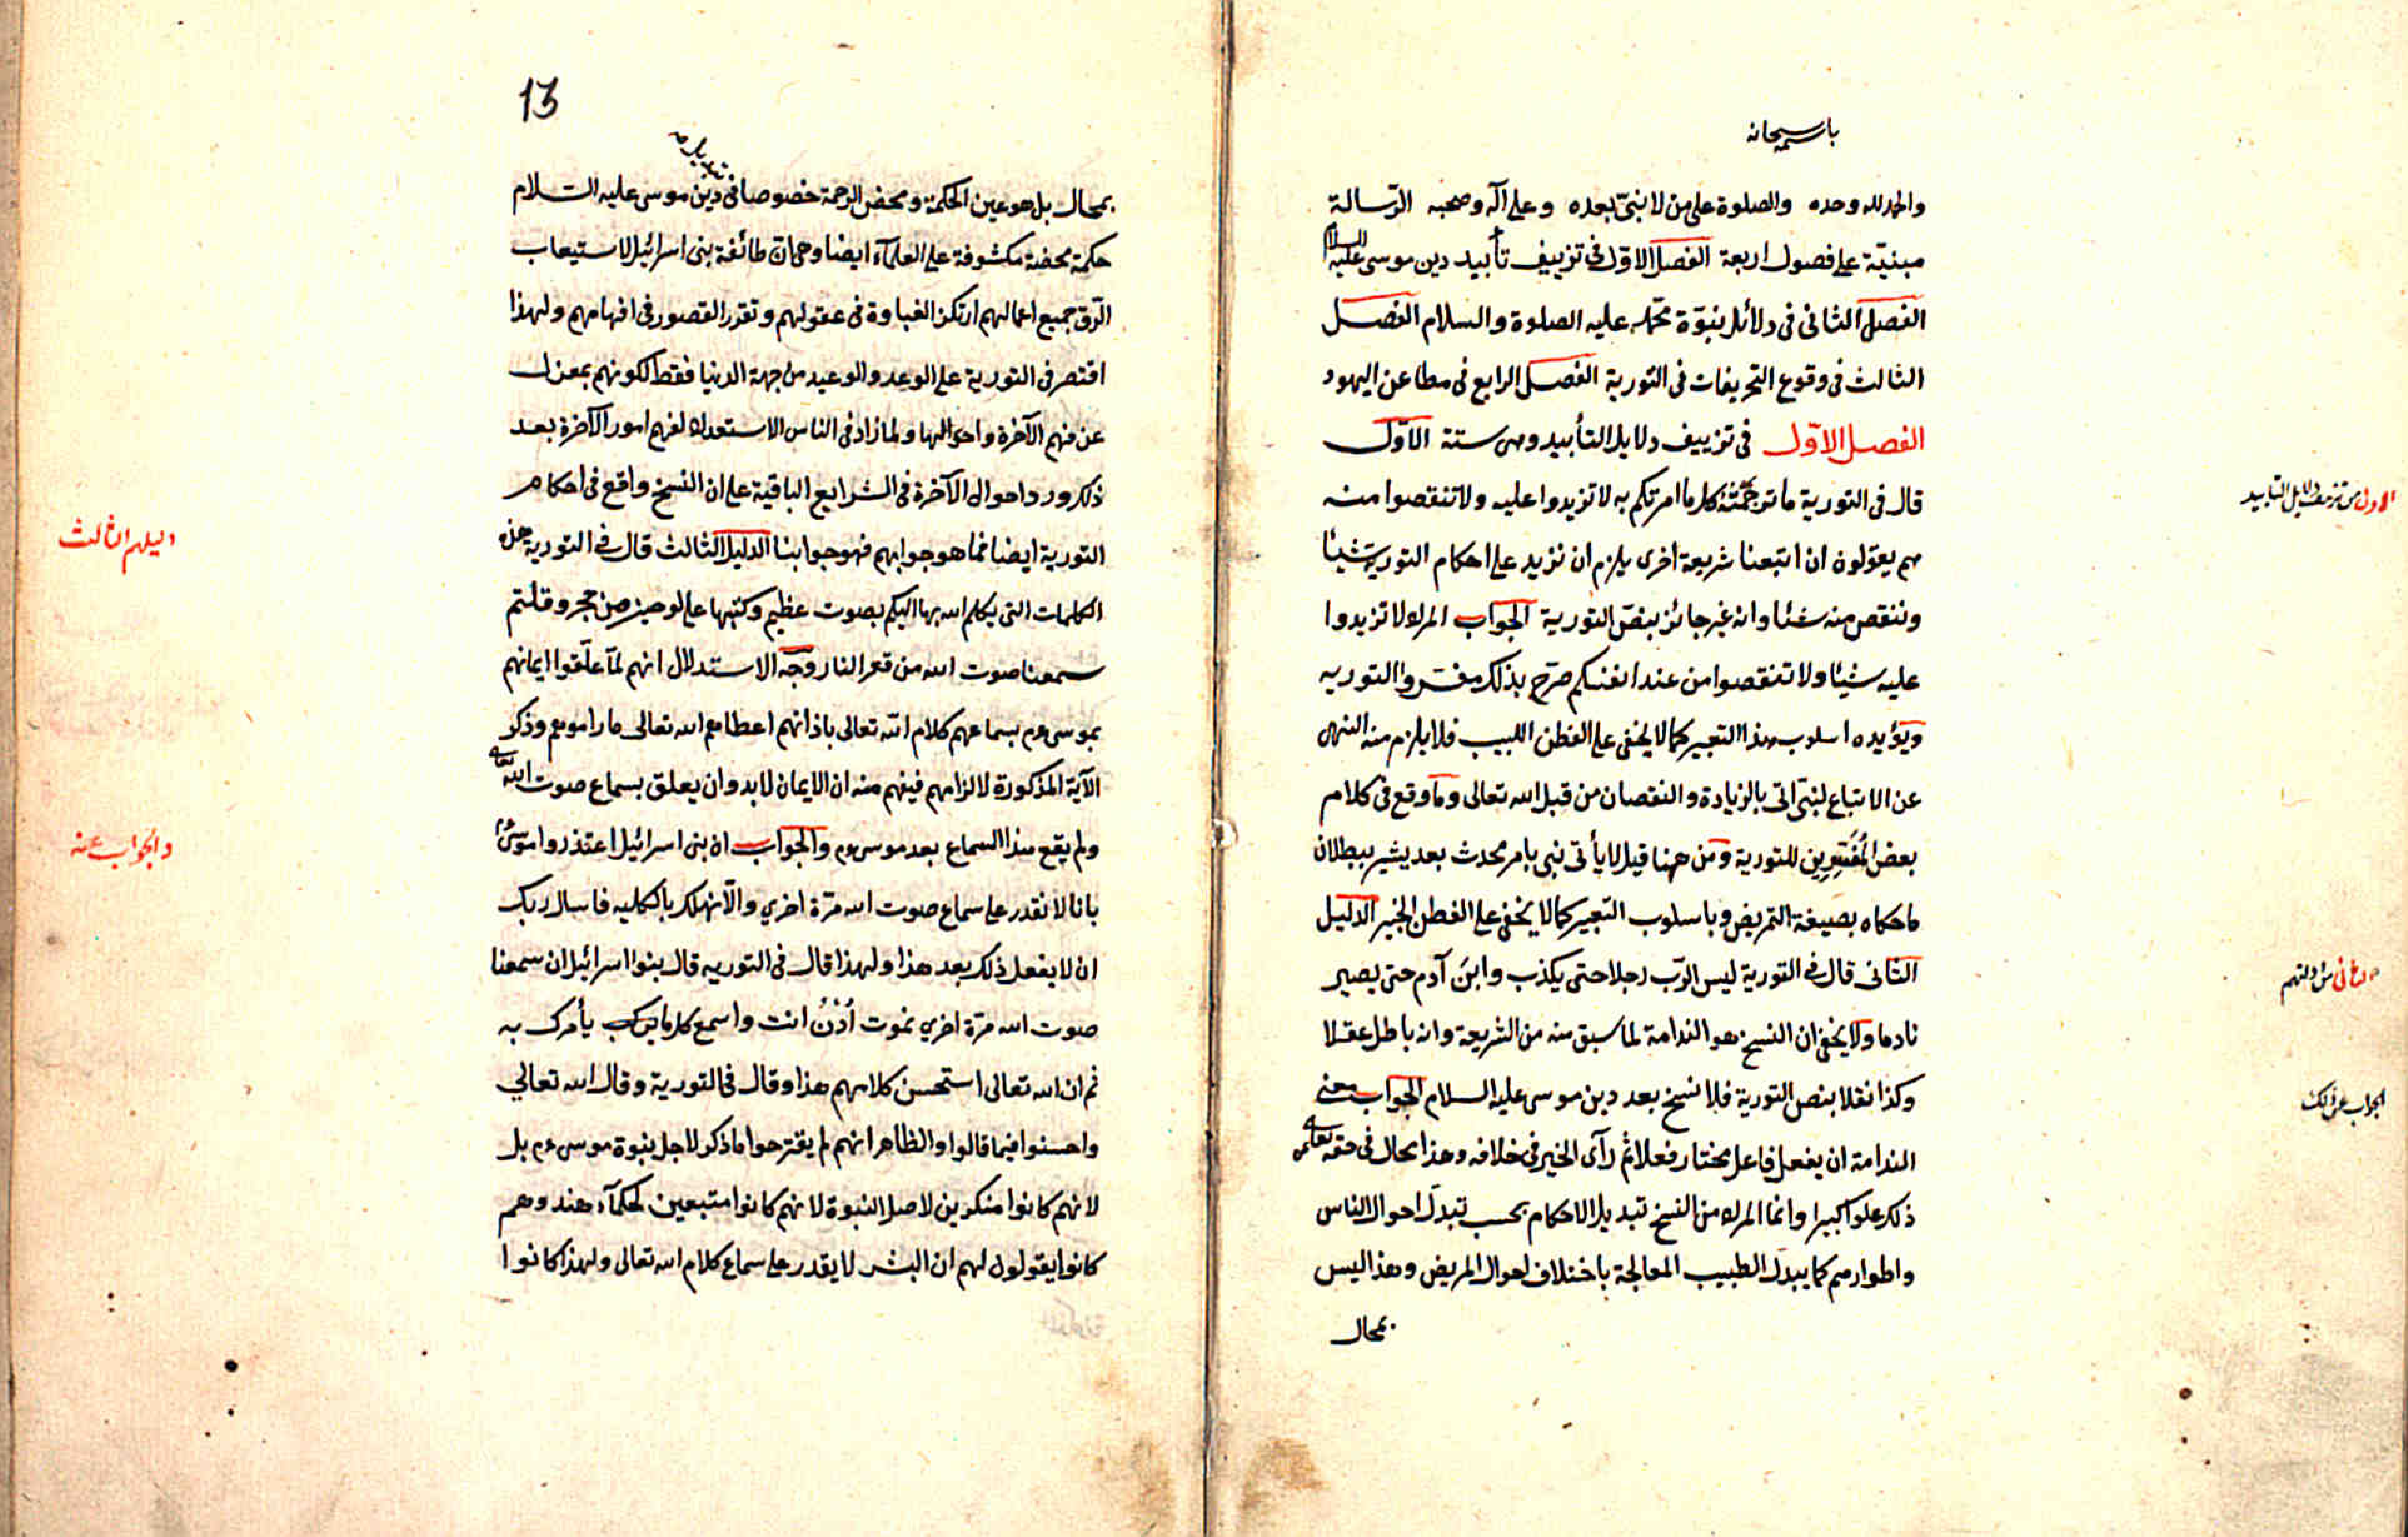 باسمه سبحانه
والحمد لله وحده والصلوة على من لا نبىّ بعده وعلى آله وصحبه الرّسالة
مبنيّة على فصول اربعة الفصل الاوّل فى تزييف تأبيد دين موسى عليه السلام
الفصل الثانى فى دلائل نبوّة محمّد عليه الصلوة والسلام الفصل
الثالث فى وقوع التحريفات فى التورية الفصل الرابع فى مطاعن اليهود
الفصل الاوّل فى تزييف دلايل التأبيد وهى ستة الاوّل
الاول من تزييف دلايل التابيد
قال فى التورية ما ترجمته كل ما امرتكم به لا تزيدوا عليه ولا تنقصوا منه
هم يقولون ان اتبعنا شريعة اخرى يلزم ان نزيد على احكام التورية شيئا
وننقص منه شئا وانه غير جائز بنصّ التورية الجواب المراد لا تزيدوا
عليه شيئا ولا تنقصوا من عند انفسكم صرّح بذلك مفسروا التوريه
ويؤيده اسلوب هذا التعبير كما لا يخفى على الفطن اللبيب فلا يلزم منه النهى
عن الاتباع لنبىّ اتى بالزيادة والنقصان من قبل الله تعالى وما وقع فى كلام
بعض المفسرين للتورية ومن ههنا قيل لا يأتى نبى بامر محدث بعد يشير ببطلان
ما حكاه بصيغة التمريض وباسلوب التعبير كما لا يخفى على الفطن الخبير الدليل
الثانى قال فى التورية ليس الرّب رجلا حتى يكذب وابن آدم حتى يصير
الثانى من ادلتهم
نادما ولا يخفى ان النسخ هو الندامة لما سبق منه من الشريعة وانه باطل عقلا
وكذا نقلا بنص التورية فلا نسخ بعد دين موسى عليه السلام الجواب معنى
الجواب عن ذلك
الندامة ان يفعل فاعل مختار فعلا ثم رآى الخير فى خلافه وهذا محال فى حقه تعالى عن
ذلك علوا كبيرا وانما المراد من النسخ تبديل الاحكام بحسب تبدّل احوال الناس
واطوارهم كما يبدل الطبيب المعالجة باختلاف احوال المريض وهذا ليس
بمحال
13
بمحال بل هو عين الحكمة ومحض الرحمة خصوصا فى دين موسى عليه السلام
حكمة محضة مكشوفة على العلمآء ايضا وهى ان طائفة بنى اسرائيل لاستيعاب
الرّق جميع اعمالهم ارتكز الغباوة فى عقولهم وتقرر القصور فى افهامهم ولهذا
اقتصر فى التورية على الوعد والوعيد من جهة الدنيا فقط لكونهم بمعزل
عن فهم الآخرة واحوالها ولما زاد فى الناس الاستعداد لفهم امور الآخرة بعد
ذلك ورد احوال الآخرة فى الشرايع الباقية على ان النسخ واقع فى احكام
التورية ايضا فما هو جوابهم فهو جوابنا الدليل الثالث قال فى التورية هذه
دليلهم الثالث
الكلمات التى يكلم الله بها اليكم بصوت عظيم وكتبها على لوحين من حجر وقلتم
سمعنا صوت الله من قعر النار وجه الاستدلال انهم لمّا علّقوا ايمانهم
بموسى عم بسماعهم كلام الله تعالى باذانهم اعطاهم الله تعالى ما راموهم وذكر
الآية المذكورة لالزامهم فيفهم منه ان الايمان لا بد وان يعلق بسماع صوت الله تعالى
ولم يقع هذا السماع بعد موسى عم والجواب ان بنى اسرائيل اعتذروا موسى
والجواب عنه
بانا لا نقدر على سماع صوت الله مرّة اخري والّا نهلك بالكليه فاسال ربك
ان لا يفعل ذلك بعد هذا ولهذا قال فى التوريه قال بنوا اسرائيل ان سمعنا
صوت الله مرّة اخري نموت اُدْنُ انت واسمع كل ما يأمرك به
ثم ان الله تعالى استحسن كلامهم هذا وقال فى التورية وقال الله تعالي
واحسنوا فيما قالوا والظاهر انهم لم يقترحوا ما ذكر لاجل نبوة موسى عم بل
لانهم كانوا منكرين لاصل النبوة لانهم كانوا متبعين لحكمآء هند وهم
كانوا يقولون لهم ان البشر لا يقدر على سماع كلام الله تعالى ولهذا كانوا